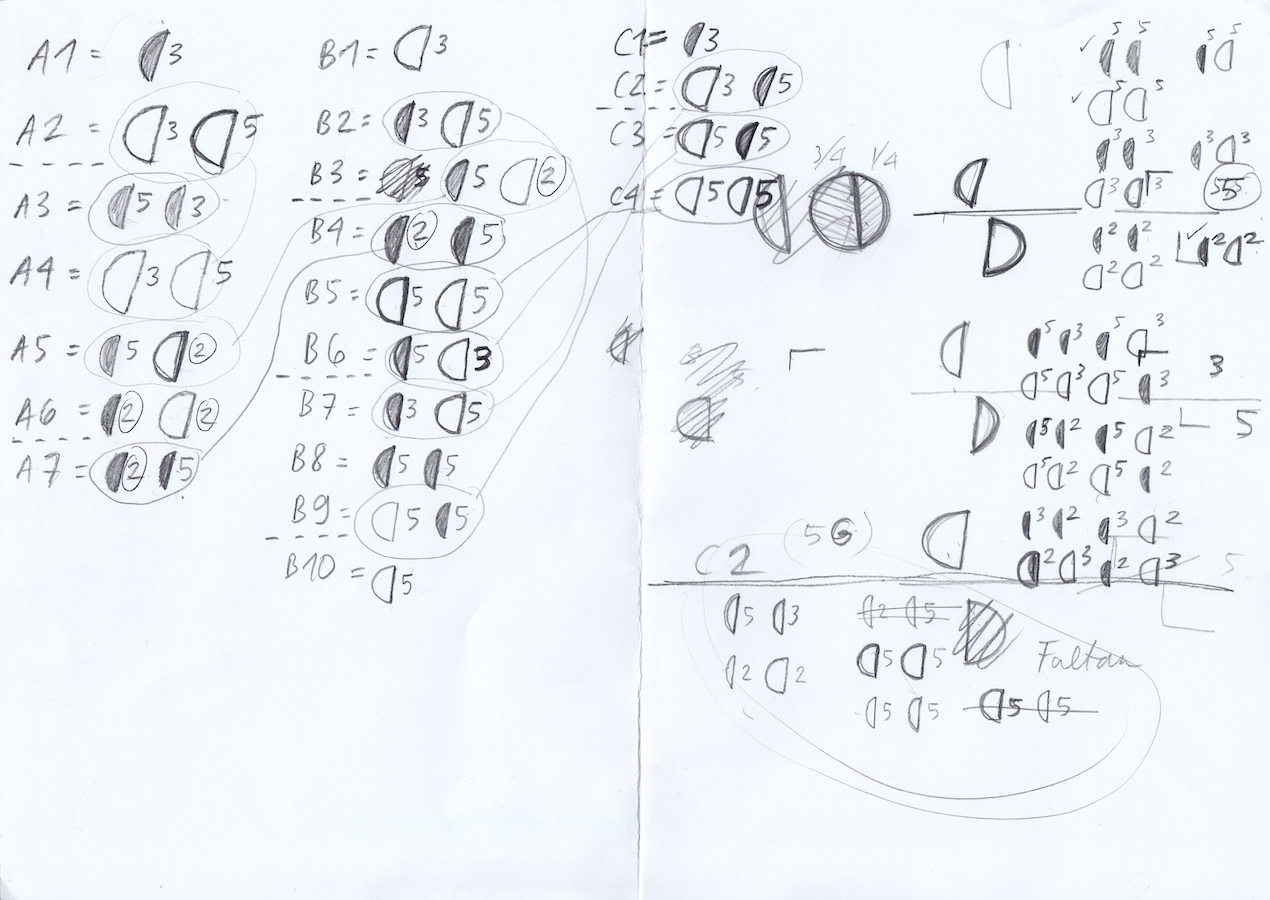 A1 = 3
A2 = 3 5
A3 = 5 3
A4 = 3 5
A5 = 5 2
A6 = 2 2
A7 = 2 5
B1 = 3
B2 = 3 5
B3 = 5 2
B4 = 2 5
B5 = 5 5
B6 = 5 3
B7 = 3 5
B8 = 5 5
B9 = 5 5
B10 = 5
C1 = 3
C2 = 3 5
C3 = 5 5
C4 = 5 5
3/4 1/4
5 5 5 5
5 5
3 3 3 3
3 3 5 5
2 2 2 2
2 2
5 3 5 3
5 3 5 3
3
5
5 2 5 2
5 2 5 2
3 2 3 2
2 3 2 3
5
C2
5 6
5 3 2 5
2 2 5 5
Faltan
5 5 5 5